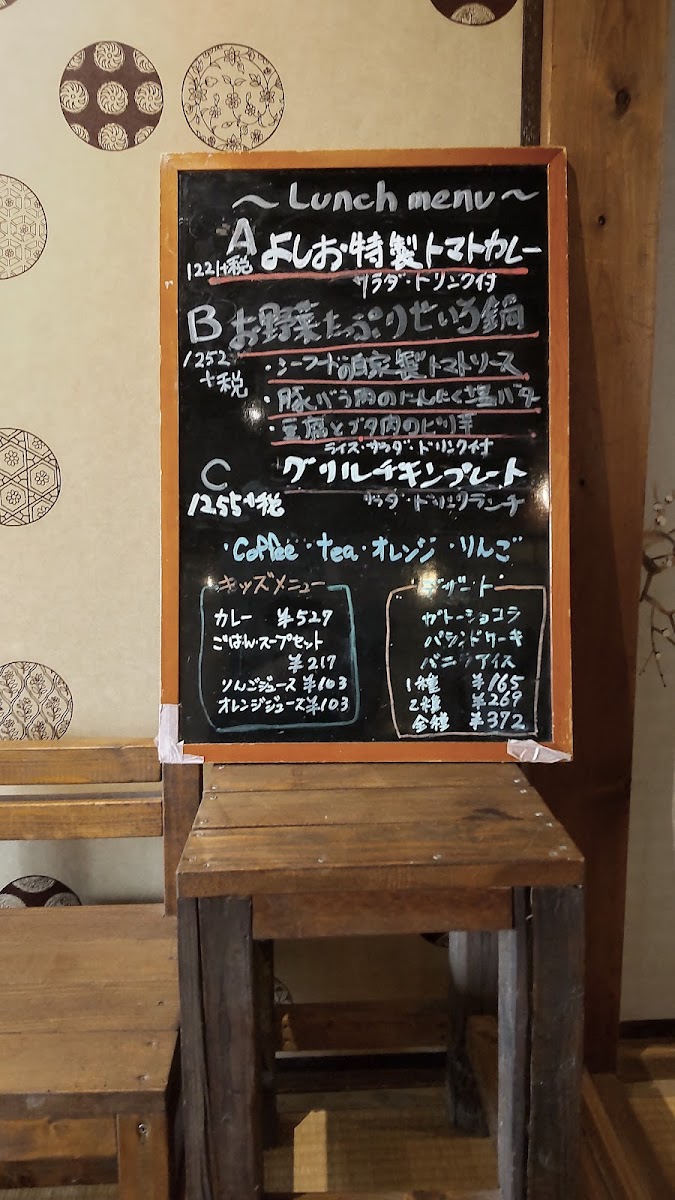 ~ Lunch menu ~
A よしお特製トマトカレー
1221+税
サラダ・ドリンク付
B お野菜たっぷりせいろ鍋
1252
+税
・シーフードの自家製トマトソース
・豚バラ肉のにんにく塩バター
・豆腐とブタ肉のピリ辛
ライス・サラダ・ドリンク付
C グリルチキンプレート
1255+税
サラダ・ドリンク
・Coffee ・tea ・オレンジ ・りんご
キッズメニュー
カレー ¥527
ごはん・スープセット
¥217
りんごジュース ¥103
オレンジジュース ¥103
デザート
ガトーショコラ
パウンドケーキ
バニラアイス
1種 ¥165
2種 ¥269
全種 ¥372